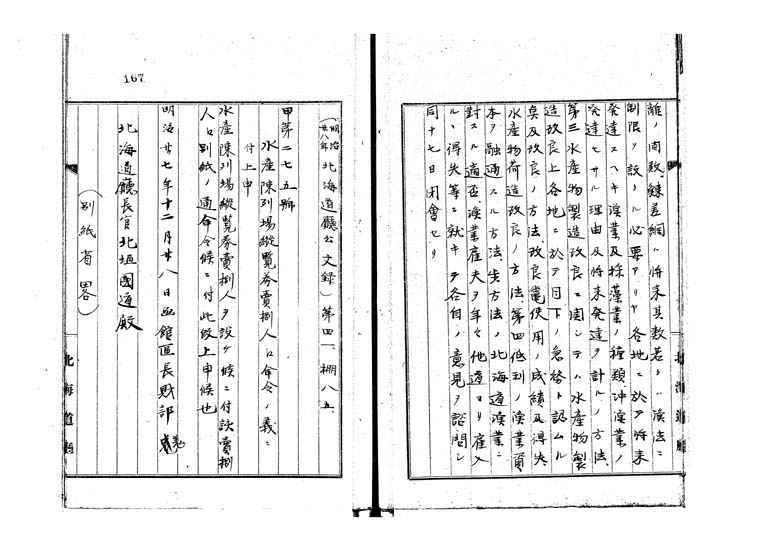 離ノ周敷、鰊差網ハ将来其数若シハ漁法ニ
制限ヲ設クル必要アリヤ各地ニ於テ将来
発達スヘキ漁業及採藻業ノ種類、沖漁業ノ
発達セサル理由及将来発達ヲ計ルノ方法、
第三水産物製造改良ニ関シテハ水産物製
造改良上各地ニ於テ目下ノ急務ト認ムル
臭及改良ノ方法、改良竈使用ノ成績及得失
水産物荷造改良ノ方法、第四低利ノ漁業資
本ヲ融通スル方法、失方法ノ北海道漁業ニ
対スル適否、漁業産夫ヲ年々他道ヨリ雇入
ルヽ得失等ニ就キテ各自ノ意見ヲ諮問シ
同十七日閉会セリ
(明治廿八年北海道廳公文録)第四一、棚八五
甲第二七五號
水産陳列場縦覧券賣捌人ロ命令ノ義ニ
付上申
水産陳列場縦覧券賣捌人ヲ設ケ候ニ付該賣捌
人ロ別紙ノ通命令候ニ付此段上申候也
明治廿七年十二月廿八日函館區長財部羌
北海道廳長官北垣國道殿
(別紙省略)
北海道廳
167